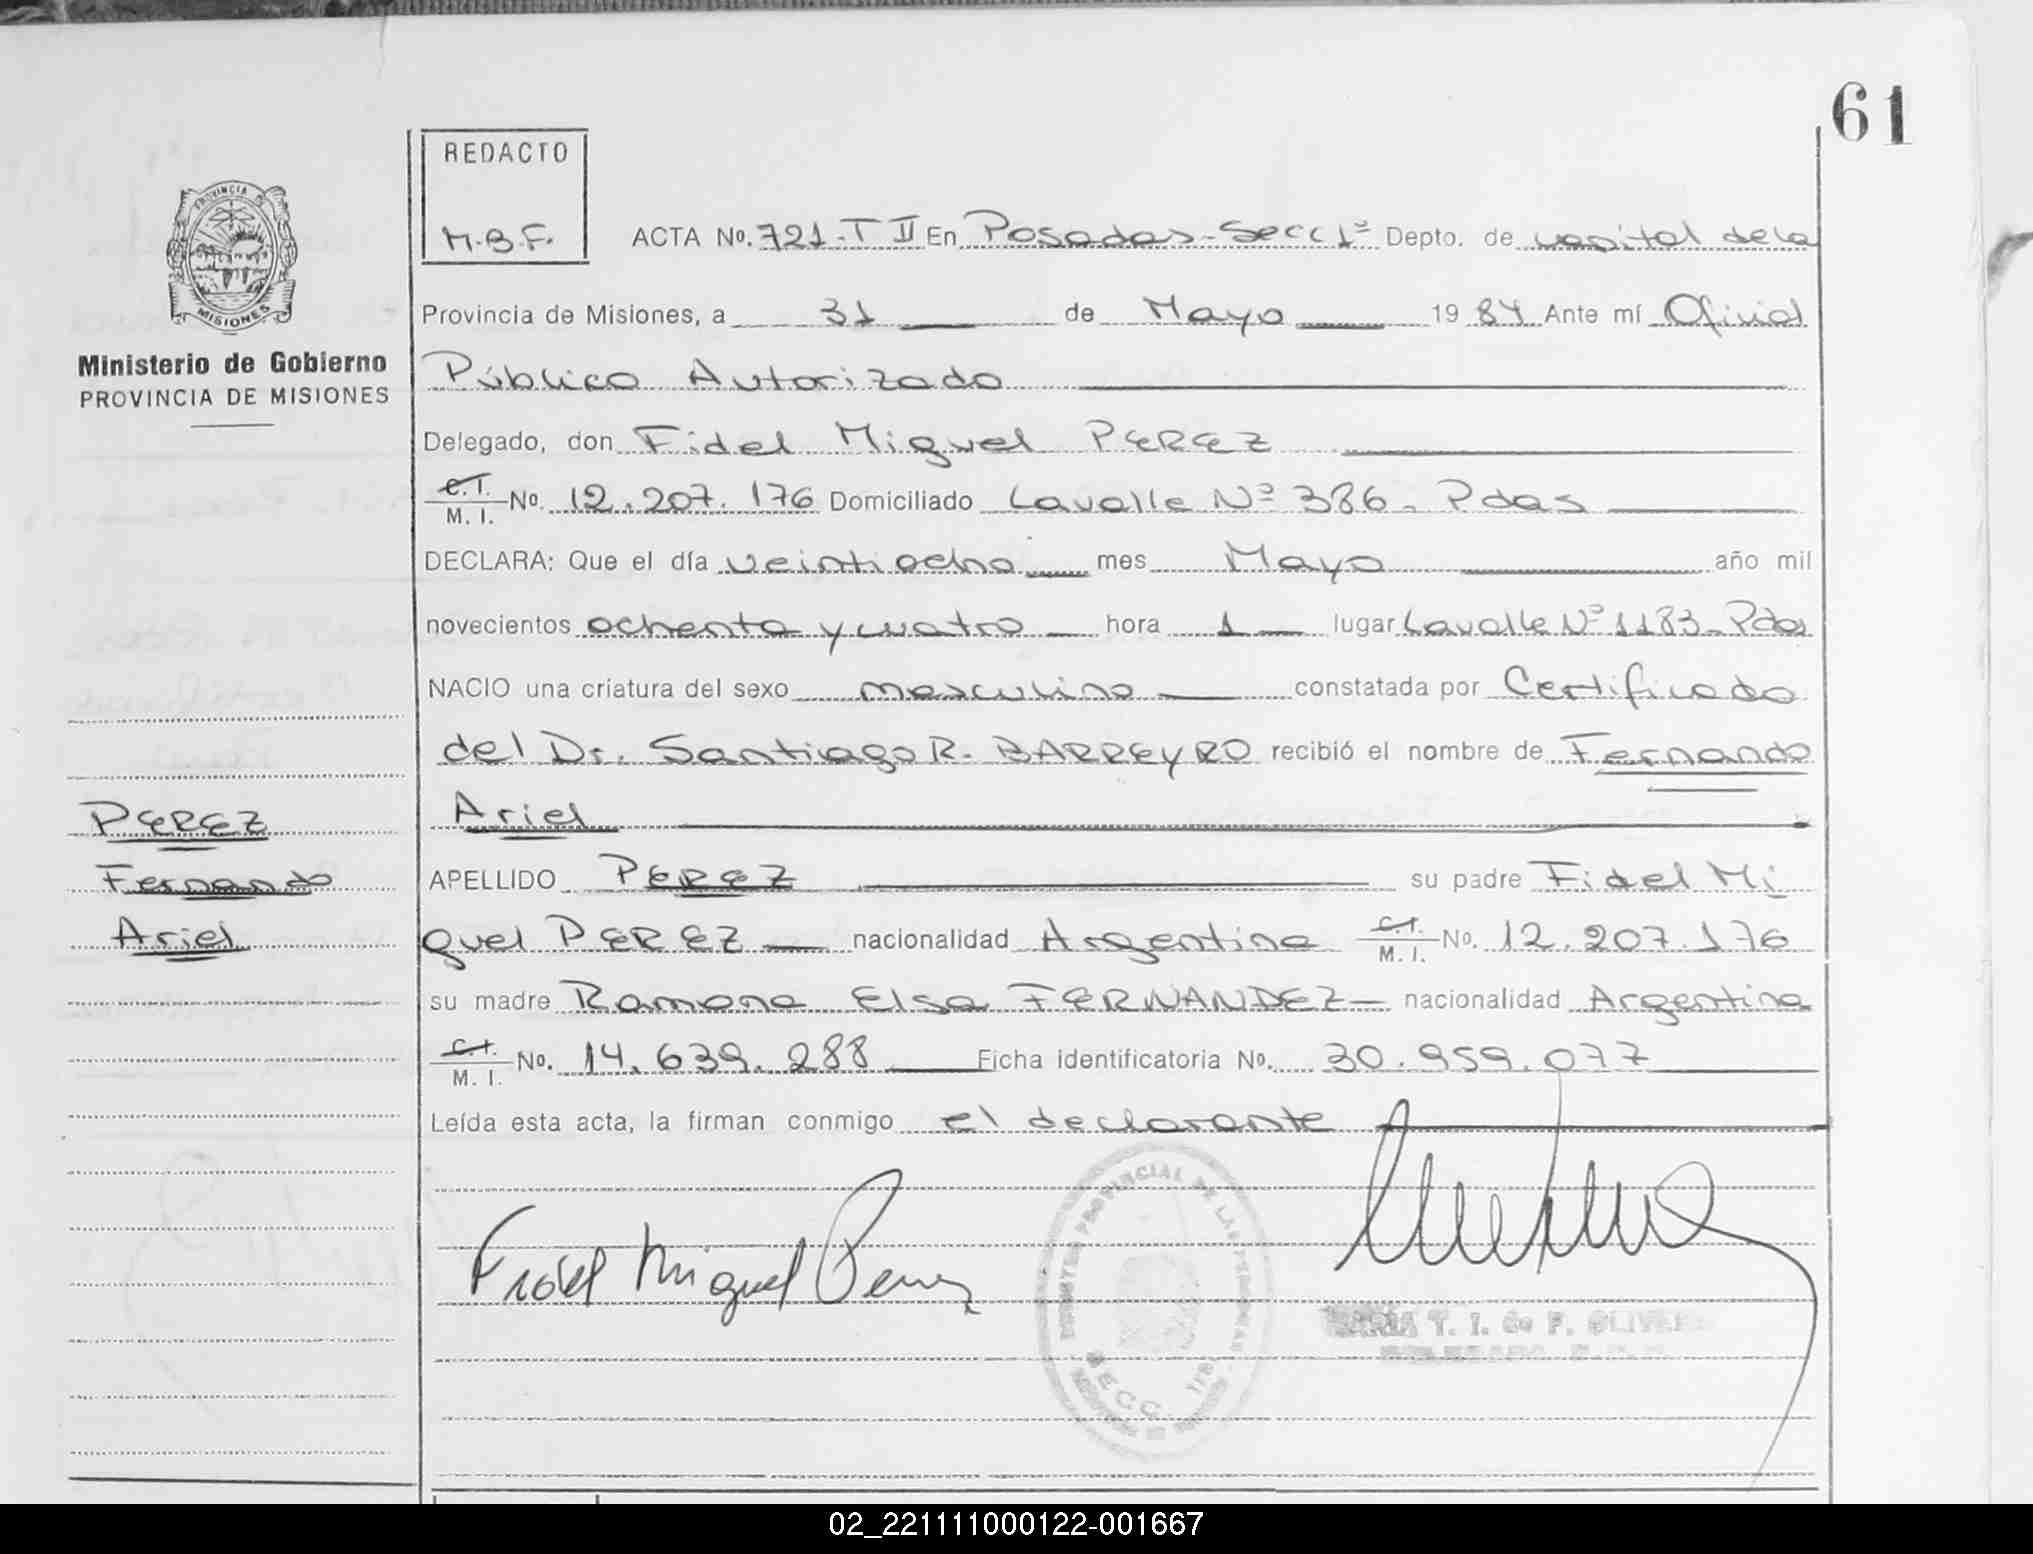 61
REDACTO
M.B.F.
PROVINCIA DE
MISIONES
Ministerio de Gobierno
PROVINCIA DE MISIONES
ACTA No. 721-T II En Posadas-Secc 1ª Depto. de capital de la
Provincia de Misiones, a 31 de Mayo 1984 Ante mí Oficial
Público Autorizado
Delegado, don Fidel Miguel PEREZ
C.I. M. I. No. 12.207.176 Domiciliado Lavalle Nº 386- Pdas
DECLARA: Que el día veintiocho mes Mayo año mil
novecientos ochenta y cuatro hora 1 lugar Lavalle Nº 1183- Pdas
NACIO una criatura del sexo masculino constatada por Certificado
del Dr. Santiago R. BARREYRO recibió el nombre de Fernando
Ariel
PEREZ
Fernando
Ariel
APELLIDO PEREZ su padre Fidel Mi
guel PEREZ nacionalidad Argentina C.I. M. I. No. 12.207.176
su madre Ramona Elsa FERNANDEZ nacionalidad Argentina
C.I. M. I. No. 14.639.288 Ficha identificatoria No. 30.959.077
Leída esta acta, la firman conmigo el declarante
Fidel Miguel Perez
PROVINCIAL DE LAS PERSONAS
SECC. 1ra
MARIA T. I. de F. OLIVERA
02_221111000122-001667